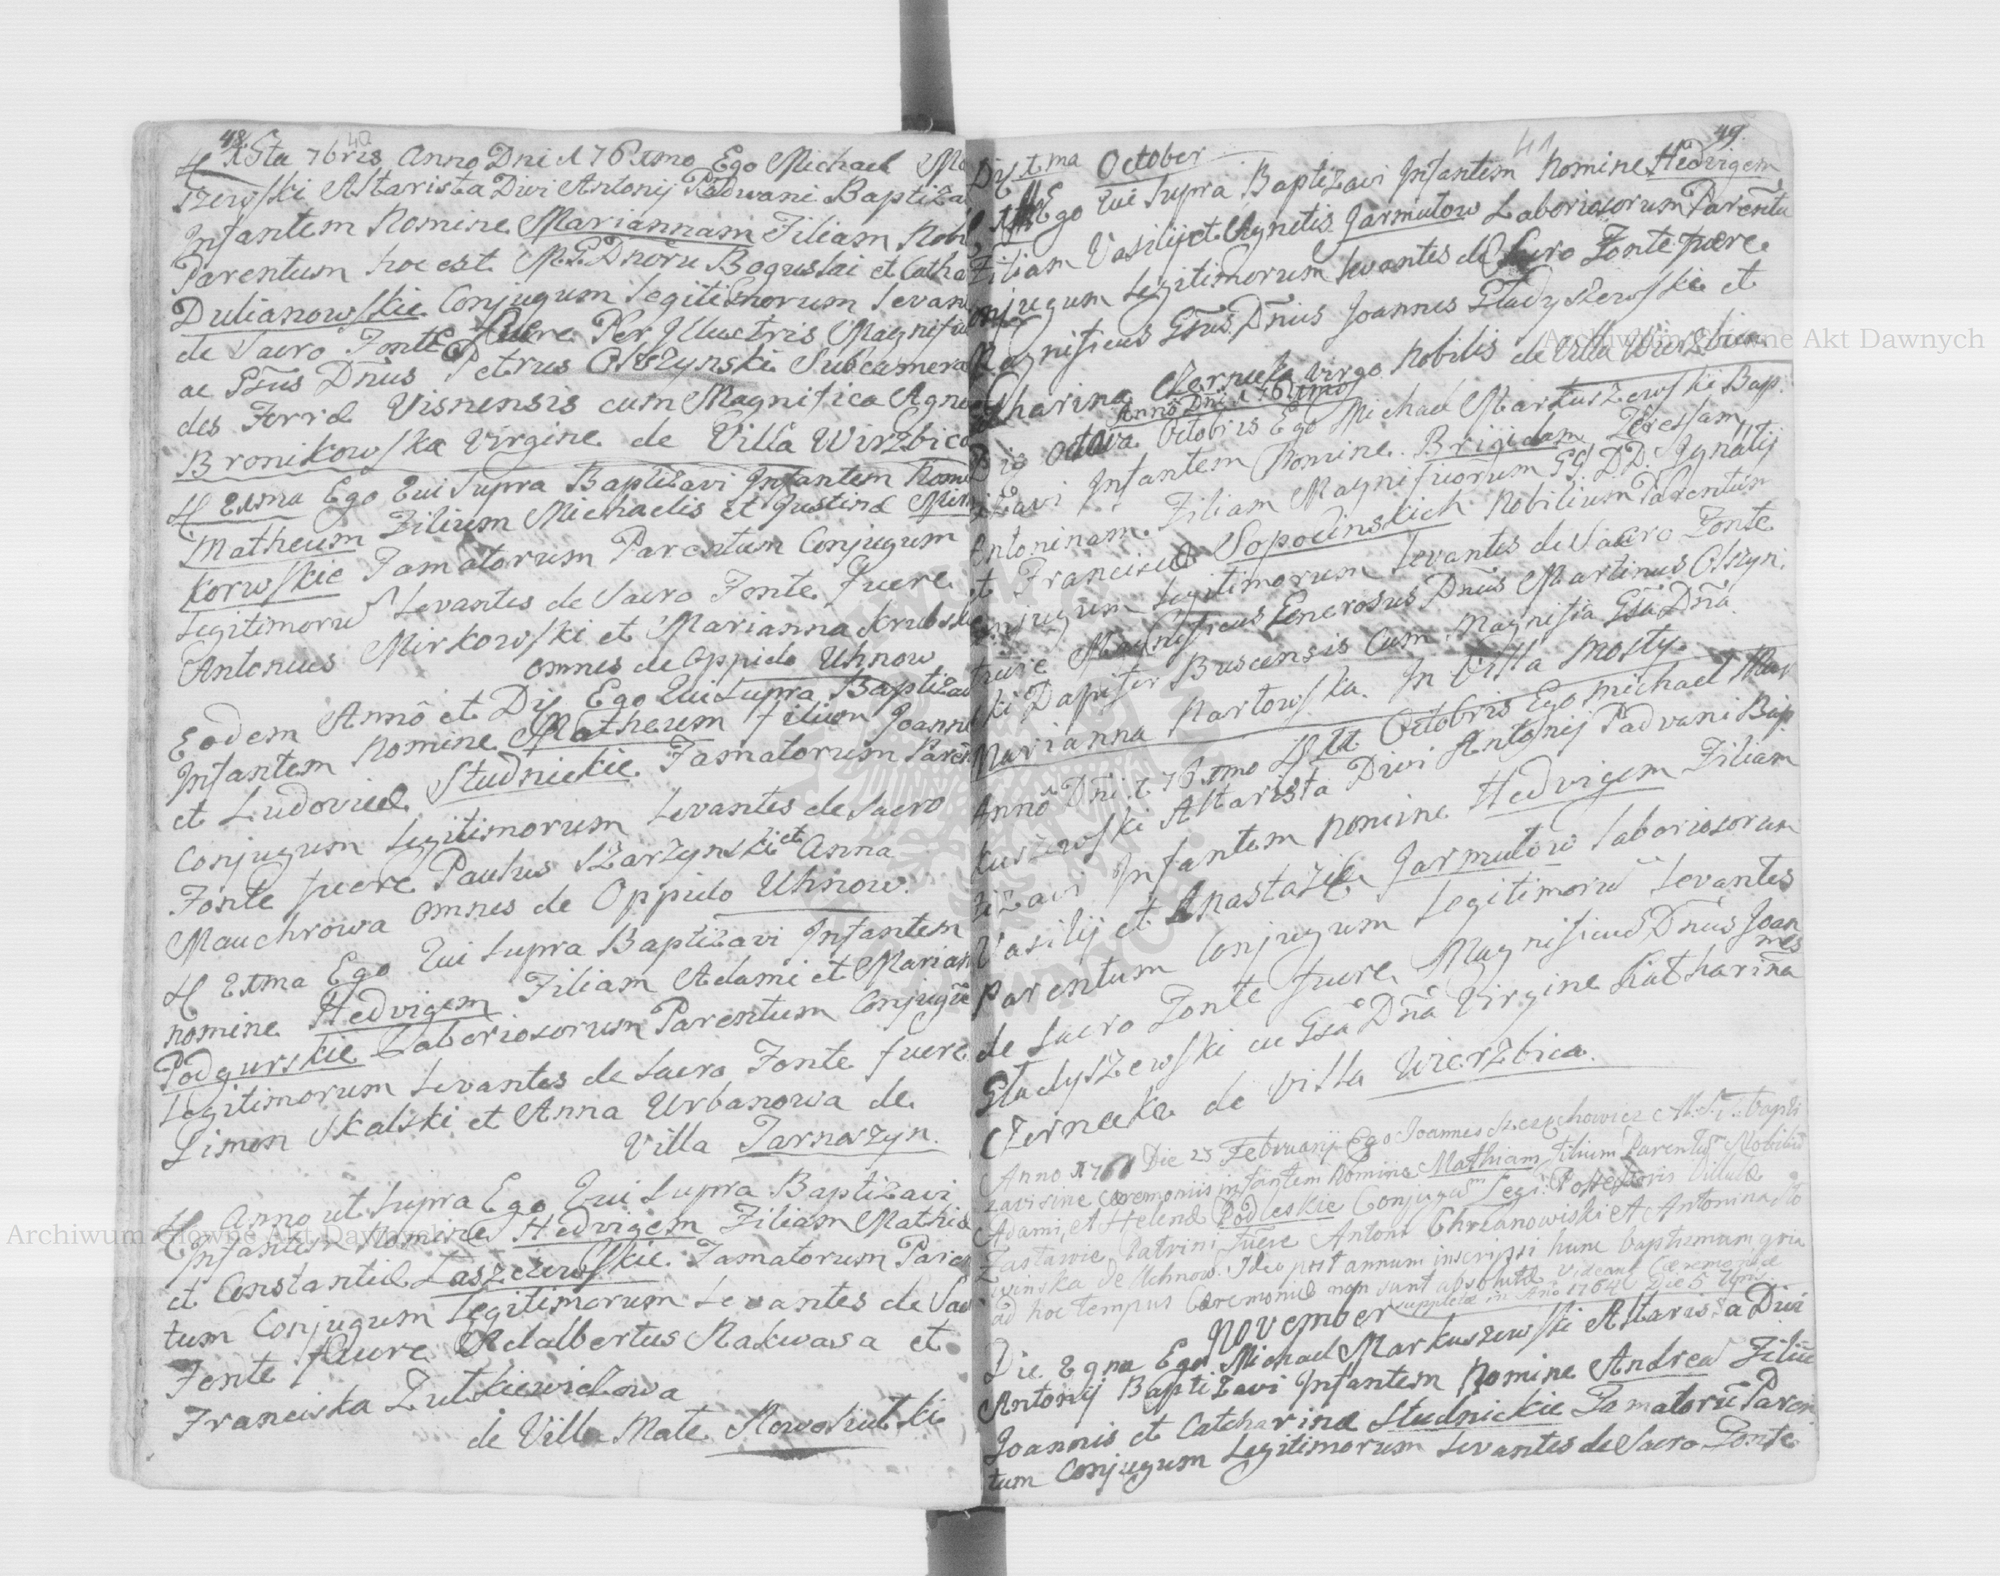 48.
40
XSta 7bris Anno Dni 176Imo Ego Michael
szewski Altarista Divi Antonij Padwani Baptiza
Infantem Nomine Mariannam Filiam Nobi
Parentum hoc est M. Dnorũ Boguslai et Catha
Dulianowskie Conjugum Legitimorum Levan
de Sacro Fonte fuere Per Illustris Magnificus
ac Gsus Dnus Petrus Olszynski Subcamera
des Terræ Visnensis cum Magnifica Agne
Bronikowska Virgine de Villa Wirzbica
21ma Ego Qui Supra Baptizavi Infantem Nomi
Matheum Filium Michaelis et Justinæ Mir
korwskie Famatorum Parentum Conjugum
Legitimorũ Levantes de Sacro Fonte fuere
Antonius Mirkowski et Marianna
omnes de Oppido Uhnow
Eodem Anno et Die Ego Qui Supra Baptizav
Infantem Nomine Matheum filium Joann
et Ludovicæ Studnickie Famatorum Paren
Conjugum Legitimorum Levantes de Sacro
Fonte fuere Paulus Szarzynski et Anna
Mauchrowa omnes de Oppido Uhnow.
Ego Qui Supra Baptizavi Infantem
nomine Hedvigem Filiam Adami et Marian
Podgurskie Laboriosorum Parentum Conjugũ
Legitimorum Levantes de Sacro Fonte fuere
Simon Skalski et Anna Urbanowa de
Villa Tarnoszyn.
Anno ut Supra Ego Qui Supra Baptizavi
Infantem Nomine Hedvigem Filiam Mathiæ
et Constantiæ Laszciewskie Famatorum Paren
tum Conjugum Legitimorum Levantes de Sac
Fonte fuere Adalbertus Rakwasa et
Franciska Zutkiewiczowa
de Villa Mate Nowosiutki
49.
41
October
Ego Qui Supra Baptizavi Infantem Nomine Hedvigem
Filiam Vasilij et Agnetis Jarmutow Laboriosorum Parentũ
onjugum Legitimorum Levantes de Sacro Fonte fuere
Magnificus Gsus Dnus Joannes Gladyszewski et
tharina Czernecka Virgo Nobilis de Villa Wirzbica
Anno Dni 176Imo
Die octava Octobris Ego Michael Markuszewski Bap
tizavi Infantem Nomine Brigidam Teressam
Antoninam Filiam Magnificorum GG DD. Ignatij
et Franciscæ Sopocinskich Nobilium Parentum
onjugum Legitimorum Levantes de Sacro Fonte
fuere Magnificus Generosus Dnus Martinus Olszyn
ski Dapifer Buscensis Cum Magnifia Gsa Dña
Marianna Nartowska In Villa Mosty.
Anno Dni 176Imo 11 Octobris Ego Michael Mar
kuszewski Altarista Divi Antonij Padvani Bap
tizavi Infantem nomine Hedvigem Filiam
Vasilij et Anastaziæ Jarmutow Laboriosorum
Parentum Conjugum Legitimorũ Levantes
de Sacro Fonte fuere Magnificus Dnus Joan
nes
Gladyszewski cũ Gsa Dña Virgine Katharina
Czernecka de Villa Wierzbica.
Anno 1761 Die 23 Februarij Ego Joannes Szczechowicz bapti
zavi sine ceremoniis infantem Nomine Mathiam filium Parentũ Nobiliũ
Adami et Helenæ Podleskie Conjugũ Legi: Possessoris Villulæ
Zastawie Patrini fuere Antoni Chrzanowiski et Antonina
winska de Uhnow. Ideo post annum inscripsi hunc baptismum quia
ad hoc tempus Ceremoniæ non sunt absolutæ Videant Ceremoniæ
suppletæ in Ano 1764 Die 5
November
Die Ego Michael Markuszewski Altarista Divi
Antonij Baptizavi Infantem Nomine Andrea Filiũ
Joannis et Catcharinæ Studnickie Famatorũ Paren
tum Conjugum Legitimorum Levantes de Sacro Fonte
Archiwum Główne Akt Dawnych
Archiwum Główne Akt Dawnych